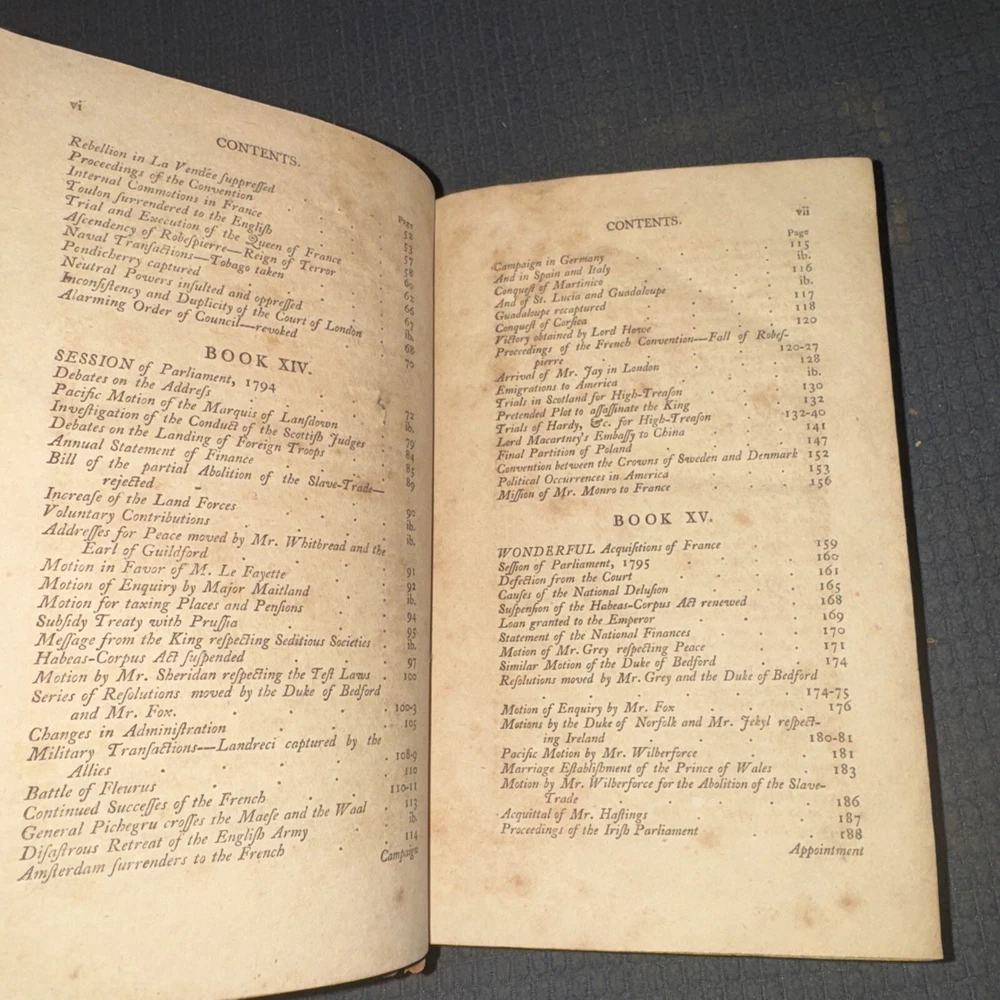 vi
CONTENTS.
Page
Rebellion in La Vendée ſuppreſſed 52
Proceedings of the Convention 53
Internal Commotions in France 57
Toulon ſurrendered to the Engliſh 58
Trial and Execution of the Queen of France 60
Aſcendency of Robeſpierre—Reign of Terror 62
Naval Tranſactions—Tobago taken 66
Pondicherry captured 67
Neutral Powers inſulted and oppreſſed ib.
Inconſiſtency and Duplicity of the Court of London 68
Alarming Order of Council—revoked 70
BOOK XIV.
SESSION of Parliament, 1794 72
Debates on the Addreſs ib.
Pacific Motion of the Marquis of Lanſdown 79
Inveſtigation of the Conduct of the Scottiſh Judges 84
Debates on the Landing of Foreign Troops 85
Annual Statement of Finance 89
Bill of the partial Abolition of the Slave-Trade—
rejected 90
Increaſe of the Land Forces ib.
Voluntary Contributions ib.
Addreſſes for Peace moved by Mr. Whitbread and the
Earl of Guildford 91
Motion in Favor of M. Le Fayette 92
Motion of Enquiry by Major Maitland ib.
Motion for taxing Places and Penſions 94
Subſidy Treaty with Pruſſia 95
Meſſage from the King reſpecting Seditious Societies ib.
Habeas-Corpus Act ſuſpended 97
Motion by Mr. Sheridan reſpecting the Teſt Laws 100
Series of Reſolutions moved by the Duke of Bedford
and Mr. Fox. 100-3
Changes in Adminiſtration 105
Military Tranſactions—Landreci captured by the
Allies 108-9
Battle of Fleurus 110
Continued Succeſſes of the French 110-11
General Pichegru croſſes the Maeſe and the Waal 113
Diſaſtrous Retreat of the Engliſh Army ib.
Amſterdam ſurrenders to the French 114
Campaign
vii
CONTENTS.
Page
Campaign in Germany 115
And in Spain and Italy ib.
Conqueſt of Martinico 116
And of St. Lucia and Guadaloupe ib.
Guadaloupe recaptured 117
Conqueſt of Corſica 118
Victory obtained by Lord Howe 120
Proceedings of the French Convention—Fall of Robeſ-
pierre 120-27
Arrival of Mr. Jay in London 128
Emigrations to America ib.
Trials in Scotland for High-Treaſon 130
Pretended Plot to aſſaſſinate the King 132
Trials of Hardy, &c. for High-Treaſon 132-40
Lord Macartney's Embaſſy to China 141
Final Partition of Poland 147
Convention between the Crowns of Sweden and Denmark 152
Political Occurrences in America 153
Miſſion of Mr. Monro to France 156
BOOK XV.
WONDERFUL Acquiſitions of France 159
Seſſion of Parliament, 1795 160
Defection from the Court 161
Cauſes of the National Deluſion 165
Suſpenſion of the Habeas-Corpus Act renewed 168
Loan granted to the Emperor 169
Statement of the National Finances 170
Motion of Mr. Grey reſpecting Peace 171
Similar Motion of the Duke of Bedford 174
Reſolutions moved by Mr. Grey and the Duke of Bedford
174-75
Motion of Enquiry by Mr. Fox 176
Motions by the Duke of Norfolk and Mr. Jekyl reſpect-
ing Ireland 180-81
Pacific Motion by Mr. Wilberforce 181
Marriage Eſtabliſhment of the Prince of Wales 183
Motion by Mr. Wilberforce for the Abolition of the Slave-
Trade 186
Acquittal of Mr. Haſtings 187
Proceedings of the Iriſh Parliament 188
Appointment